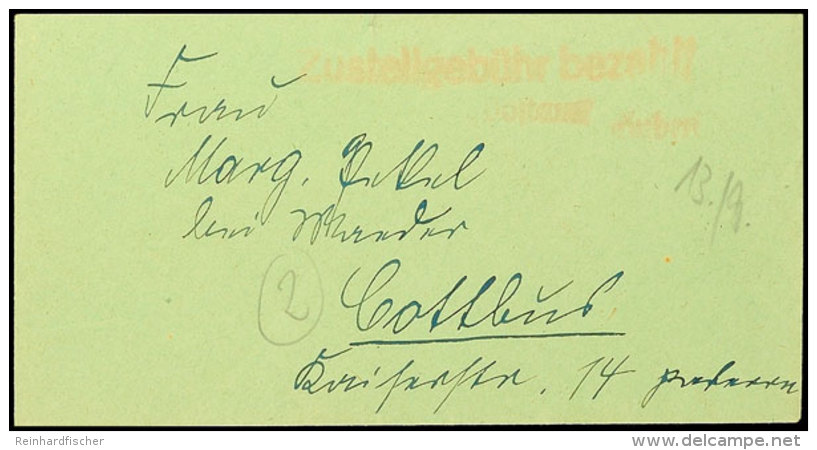 Zustellgebühr bezahlt
Frau
Marg.
bei
13./9.
2
Cottbus
Kaiserstr. 14 parterre
Reinhardfischer
www.delcampe.net